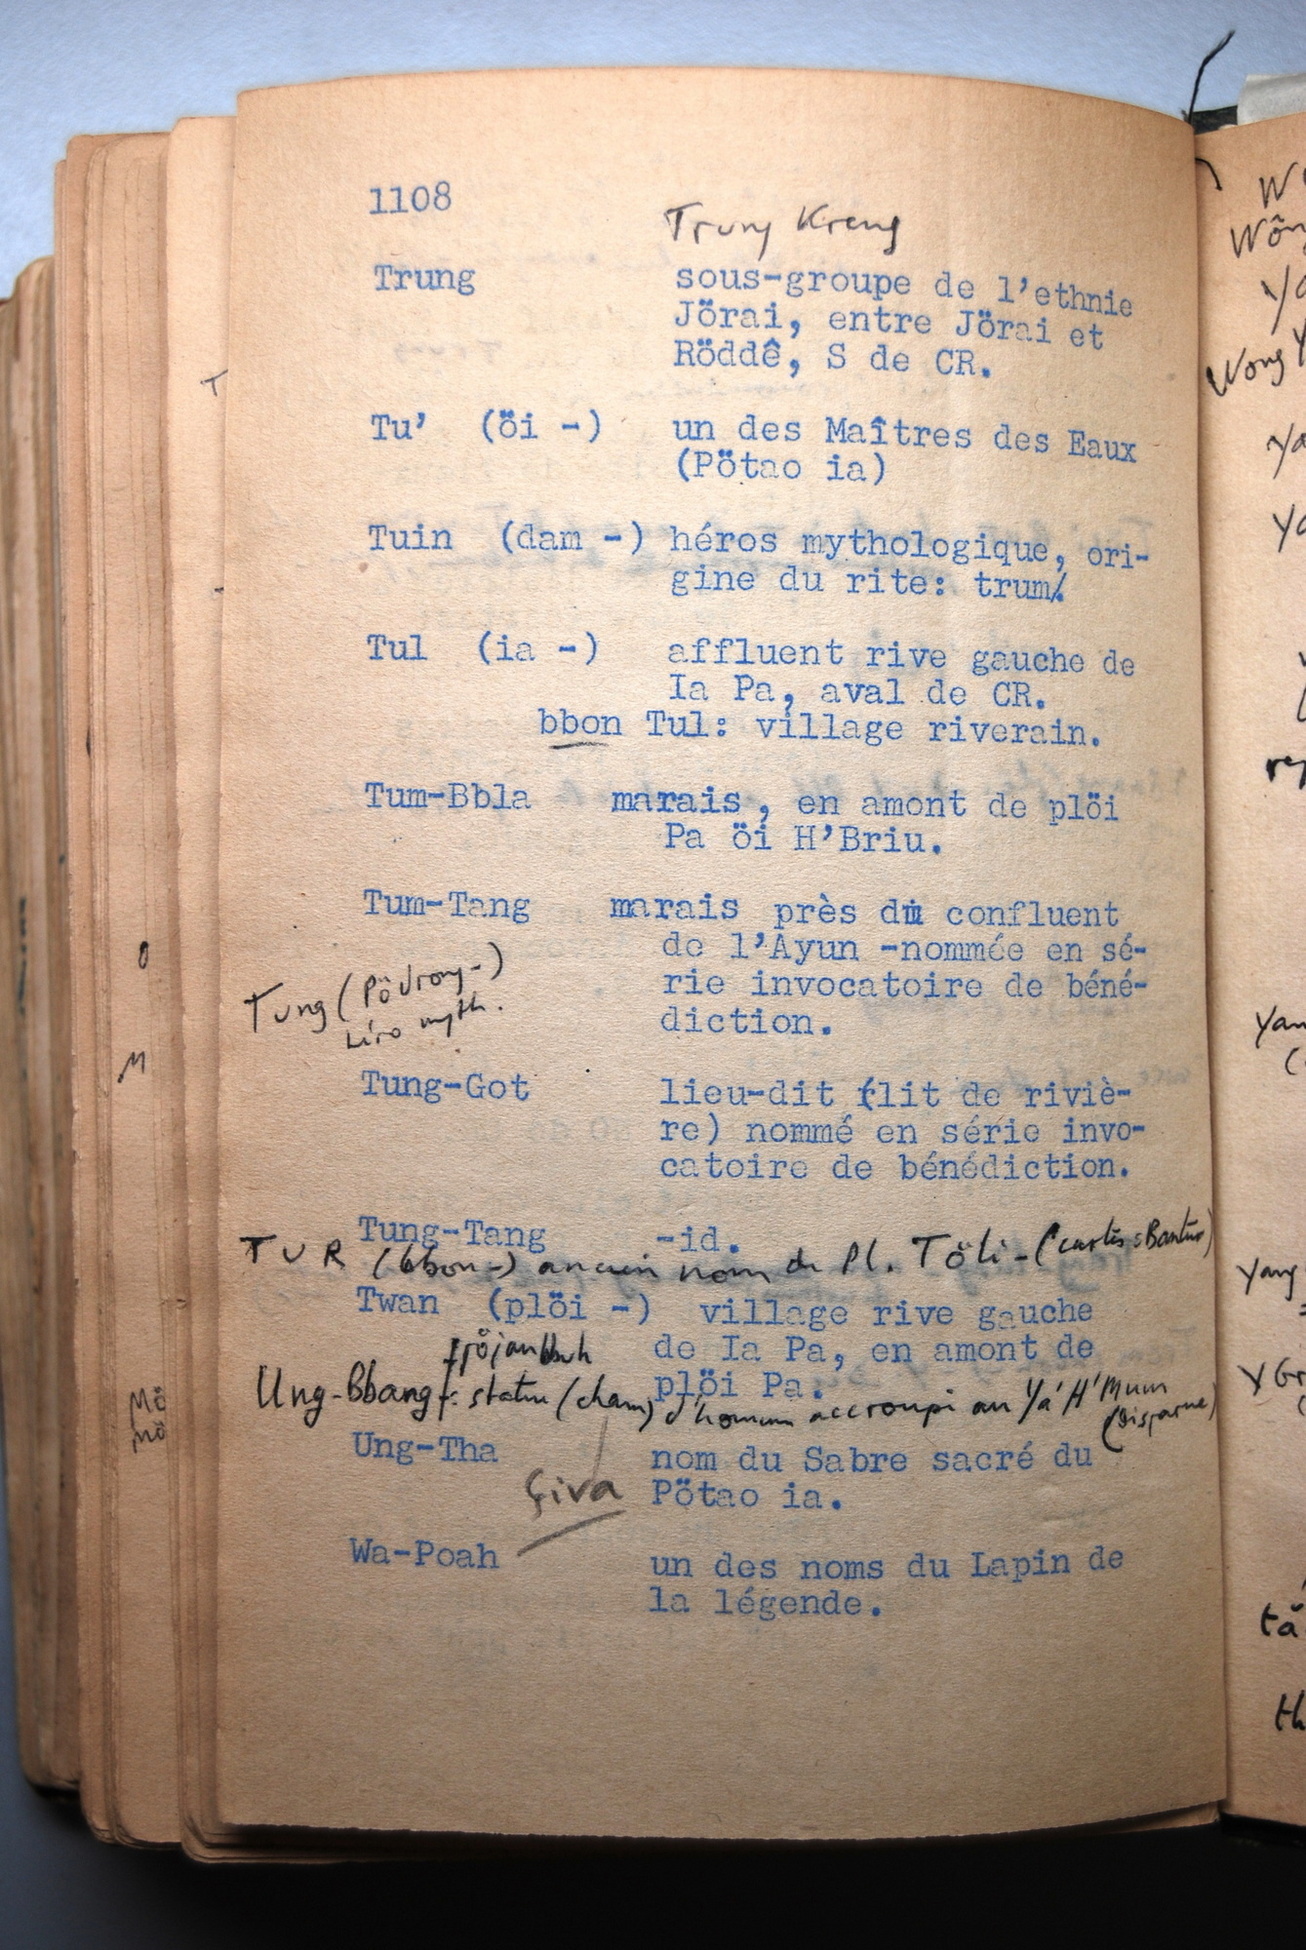 1108
Trung Kreng
Trung sous-groupe de l'ethnie
Jörai, entre Jörai et
Röddê, S de CR.
Tu' (öi -) un des Maîtres des Eaux
(Pötao ia)
Tuin (dam -) héros mythologique, ori-
gine du rite: trum.
Tul (ia -) affluent rive gauche de
Ia Pa, aval de CR.
bbon Tul: village riverain.
Tum-Bbla marais, en amont de plöi
Pa öi H'Briu.
Tum-Tang marais près du confluent
de l'Ayun -nommée en sé-
rie invocatoire de béné-
diction.
Tung (Pödrong-)
héro myth.
Tung-Got lieu-dit (lit de riviè-
re) nommé en série invo-
catoire de bénédiction.
Tung-Tang -id.
TUR (bbon-) ancien nom de Pl. Töli-(
Twan (plöi -) village rive gauche
de Ia Pa, en amont de
plöi Pa.
Ung-Bbang : statue (cham) d'homme accroupi au Ya' H'Mum
(disparue)
Ung-Tha nom du Sabre sacré du
Pötao ia.
Çiva
Wa-Poah un des noms du Lapin de
la légende.
T
O
M
Mö
mö
W
Wôn
Ya
Wong Y
Ya
Ya
Yan
Yang
Y Gr
tă
th